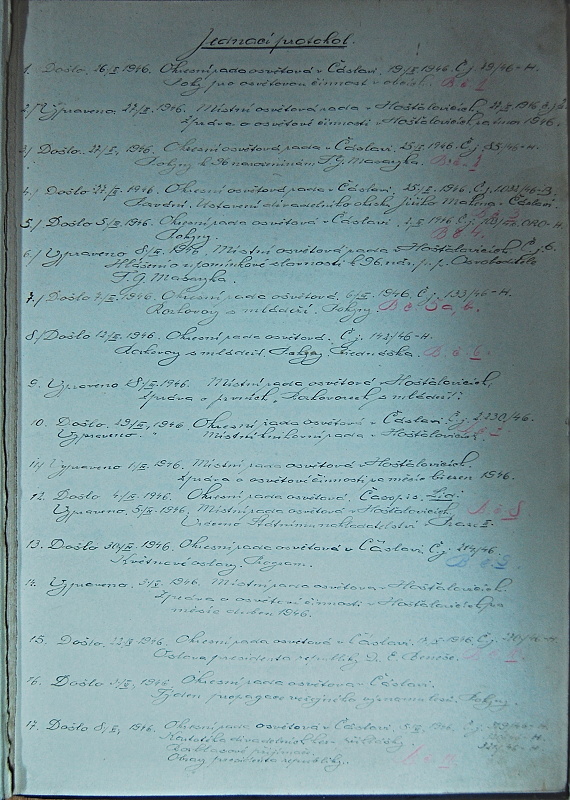 Jednací protokol.
1. Došlo 26/I. 1946. Okresní rada osvětová v Čáslavi, 19/I 1946. Čj. 19/46-H.
Pokyny pro osvětovou činnost v obcích. B č. 1
2/ Vypraveno 27/II. 1946. Místní osvětová rada v Hošťalovicích, 27.II 1946
Zpráva o osvětové činnosti v Hošťalovicích za únor 1946.
3/ Došlo 27/II, 1946. Okresní osvětová rada v Čáslavi, 25.II 1946. Čj. 85/46-H.
Pokyny k 96 narozeninám T.G. Masaryka.
4/ Došlo 27/II. 1946. Okresní osvětová rada v Čáslavi, 25/II. 1946. Čj.
Ustavení divadelního okrsku Jiřího Mahena - Čáslavi.
5/ Došlo 5/III. 1946. Okresní osvětová rada v Čáslavi, 1946 Čj.
Pokyny. B č. 4.
6/ Vypraveno 8/III. 1946. Místní osvětová rada v Hošťalovicích Čj. 6.
Hlášení o vzpomínkové slavnosti k 96. nar. p. p. Osvoboditele
T. G. Masaryka.
7/ Došlo 7/III, 1946. Okresní rada osvětová, 6/III 1946, Čj. 133/46-H.
Rozhovory s mládeží. Pokyny B č. 5a, b.
8/ Došlo 12/III. 1946. Okresní rada osvětová. Čj. 143/46-H.
Rozhovory s mládeží, Pokyny, Přednáška. B č. 6.
9. Vypraveno 18/III. 1946. Místní rada osvětová v Hošťalovicích,
Zpráva o prvních "Rozhovorech s mládeží".
10. Došlo 29/III, 1946. Okresní rada osvětová v Čáslavi Čj. 2230/46.
Vypraveno " Místní knihovní rada v Hošťalovicích.
11/ Vypraveno 1/IV. 1946. Místní rada osvětová v Hošťalovicích.
Zpráva o osvětové činnosti za měsíc březen 1946.
12. Došlo 4/IV. 1946. Okresní rada osvětová. Časopis
Vypraveno 5/IV. 1946. Místní rada osvětová v Hošťalovicích, B č. 8
Ústřednímu Státnímu nakladatelství Praze I.
13. Došlo 30/IV. 1946. Okresní rada osvětová v Čáslavi. Čj. 214/46.
Květnové oslavy, Program. B č. 9.
14. Vypraveno 1946. Místní rada osvětová v Hošťalovicích.
Zpráva o osvětové činnosti v Hošťalovicích za
měsíc duben 1946.
15. Došlo 1946. Okresní rada osvětová v Čáslavi 1946 Čj.
Oslava presidenta republiky Dr. E. Beneše.
16. Došlo 1946 Okresní rada osvětová v Čáslavi.
Týden propagace Pokyny.
17. Došlo 8/VI, 1946, Okresní rada osvětová v Čáslavi, 1946, Čj.
Kartotéka divadelních her,
Rozhlasové přijímače.
Obrazy presidenta republiky.